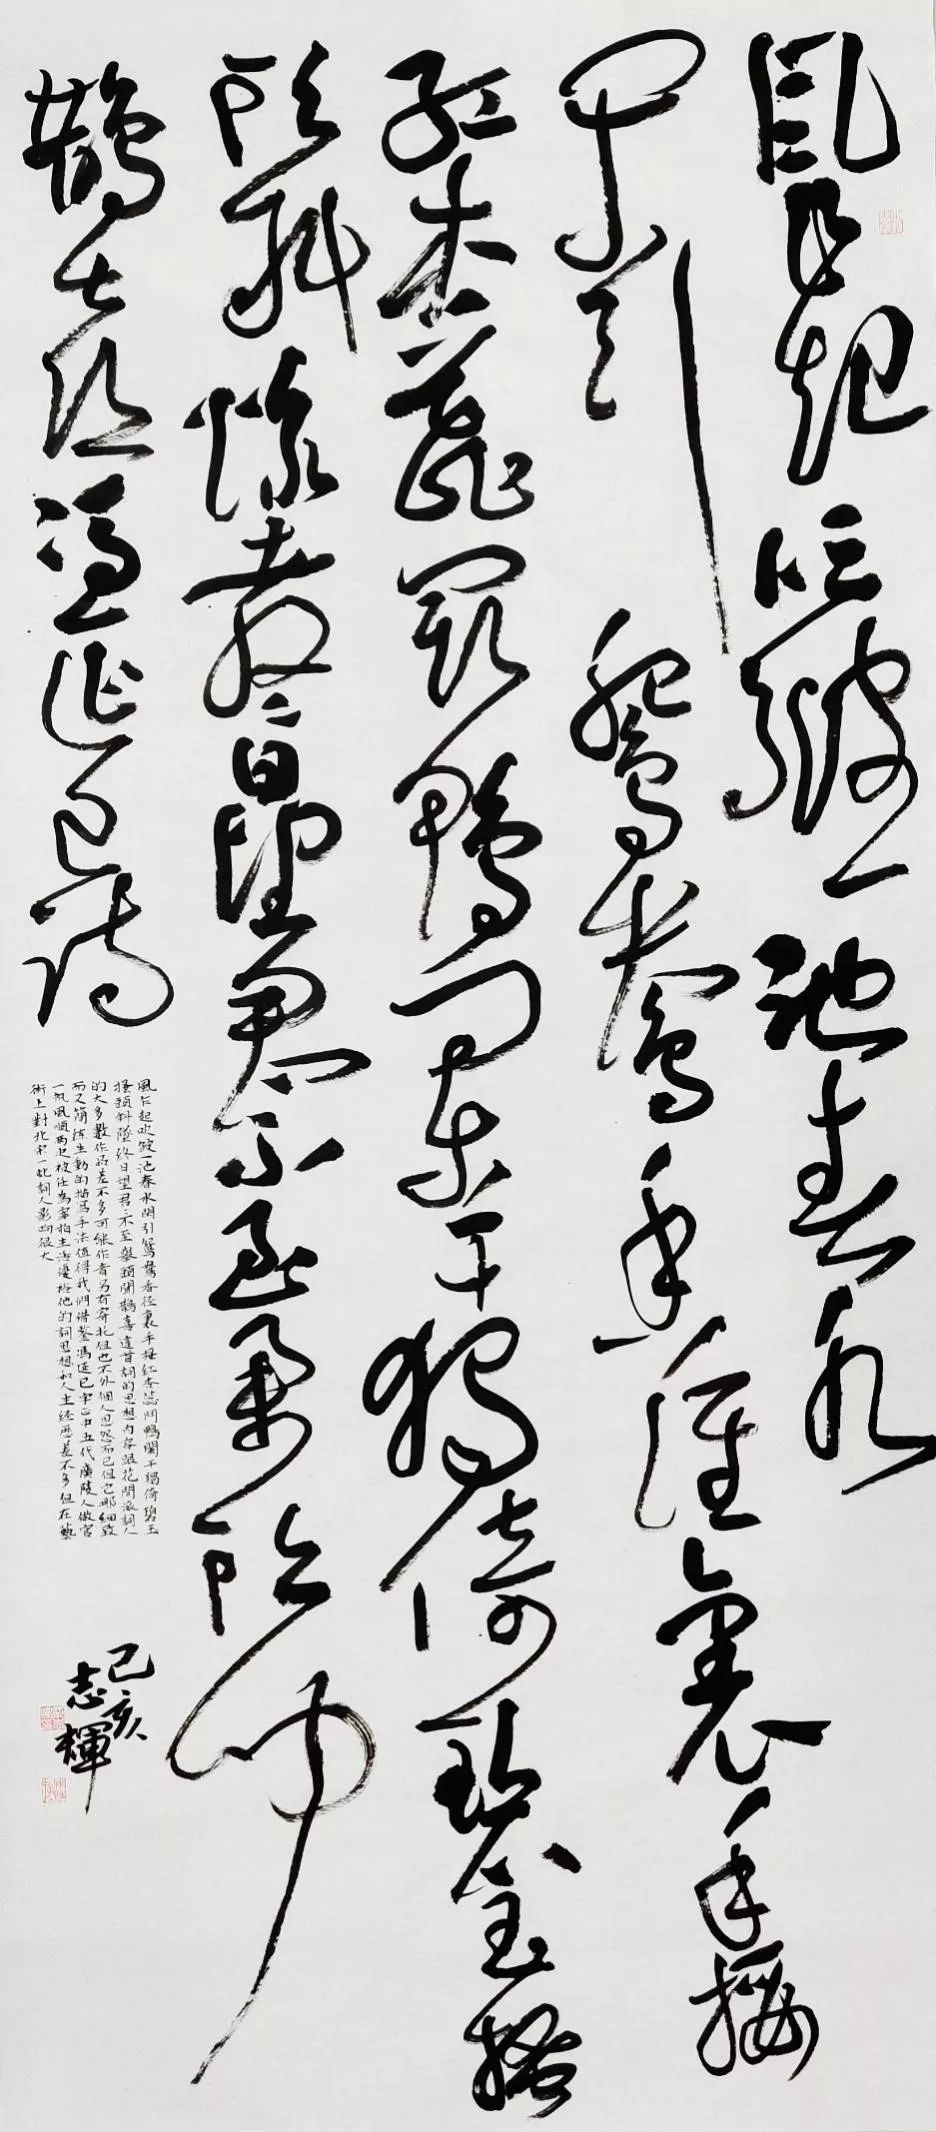 風乍起吹皺一池春水
閒引鴛鴦香徑裏手挼
紅杏蕊鬥鴨闌干獨倚碧玉搔
頭斜墜終日望君君不至舉頭聞
鵲喜馮延巳詞
風乍起吹皺一池春水閒引鴛鴦香徑裏手挼紅杏蕊鬥鴨闌干獨倚碧玉
搔頭斜墜終日望君君不至舉頭聞鵲喜這首詞的思想內容跟花間派詞人
的大多數作品差不多可能作者另有寄託但也不外個人思怨而已但它那細致
而又簡練生動的描寫手法值得我們借鑒馮延巳字正中五代廣陵人做官
一帆風順兩次被任為宰相生活優裕他的詞思想和人生經歷差不多但在藝
術上對北宋一些詞人影響很大
己亥
志輝